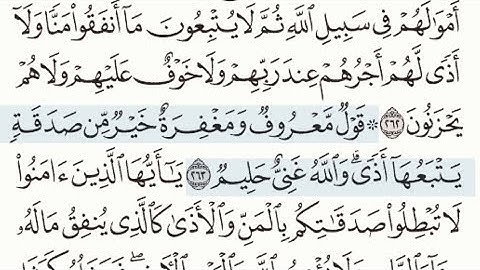 أَمْوَٰلَهُمْ فِى سَبِيلِ ٱللَّهِ ثُمَّ لَا يُتْبِعُونَ مَآ أَنفَقُوا۟ مَنًّا وَلَآ
أَذًى لَّهُمْ أَجْرُهُمْ عِندَ رَبِّهِمْ وَلَا خَوْفٌ عَلَيْهِمْ وَلَا هُمْ
يَحْزَنُونَ ٢٦٢ ۞ قَوْلٌ مَّعْرُوفٌ وَمَغْفِرَةٌ خَيْرٌ مِّن صَدَقَةٍ
يَتْبَعُهَآ أَذًى ۗ وَٱللَّهُ غَنِىٌّ حَلِيمٌ ٢٦٣ يَـٰٓأَيُّهَا ٱلَّذِينَ ءَامَنُوا۟
لَا تُبْطِلُوا۟ صَدَقَـٰتِكُم بِٱلْمَنِّ وَٱلْأَذَىٰ كَٱلَّذِى يُنفِقُ مَالَهُۥ